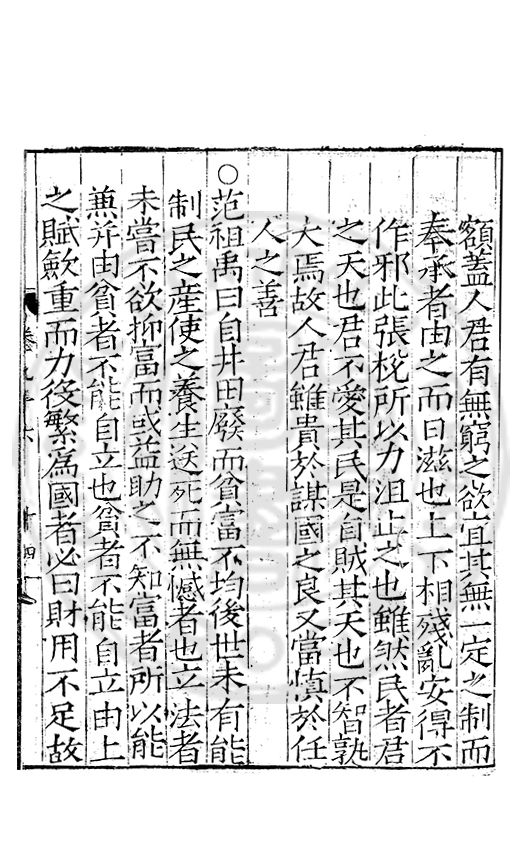 額蓋人君有無窮之欲宜其無一定之制而
奉承者由之而日滋也上下相殘亂安得不
作邪此張棁所以力沮止之也雖然民者君
之天也君不愛其民是自賊其天也不智孰
大焉故人君雖貴於謀國之良又當慎於任
人之善
○范祖禹曰自井田廢而貧富不均後世未有能
制民之產使之養生送死而無憾者也立法者
未嘗不欲抑富而或益助之不知富者所以能
兼并由貧者不能自立也貧者不能自立由上
之賦斂重而力役繁爲國者必曰財用不足故